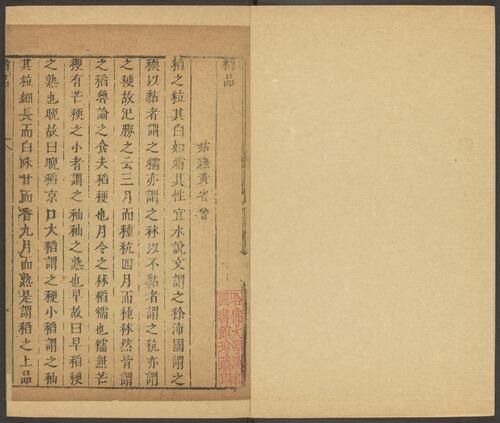 稻品
姑蘇黃省曾
稻之粒其白如霜其性宜水說文謂之稌沛國謂之
稬以黏者謂之糯亦謂之秫以不黏者謂之秔亦謂
之稉故氾勝之云三月而種秔四月而種秫然皆謂
之稻魯論之食夫稻稉也月令之秫稻糯也糯無芒
稉有芒稉之小者謂之秈秈之熟也早故曰早稻稉
之熟也晚故曰晚稻京口大稻謂之稉小稻謂之秈
其粒細長而白味甘而香九月而熟是謂稻之上品
稻品